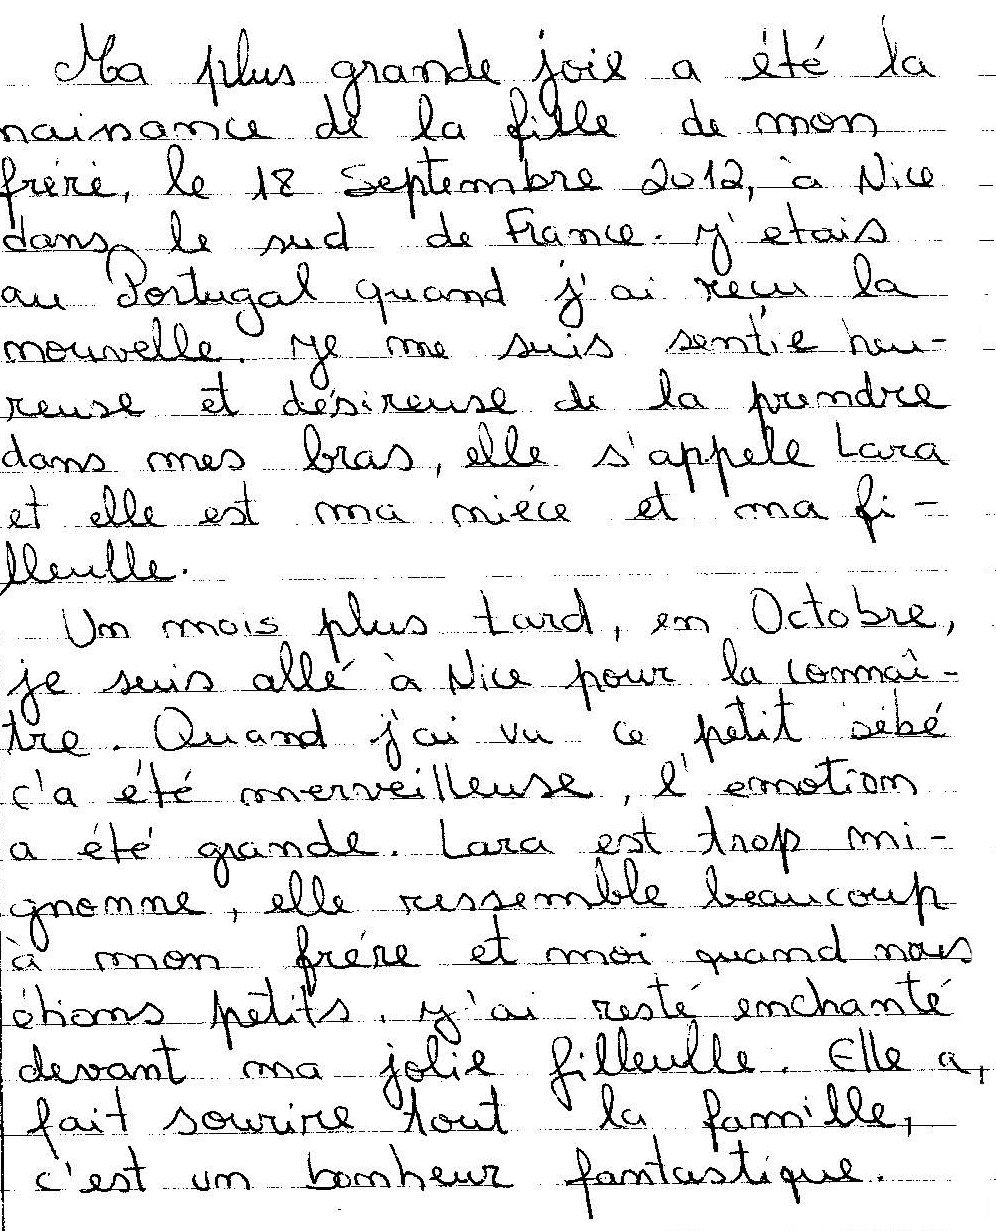 Ma plus grande joie a été la
naissance de la fille de mon
frére, le 18 Septembre 2012, à Nice
dans le sud de France. J'etais
au Portugal quand j'ai reçu la
nouvelle. Je me suis sentie heu-
reuse et désireuse de la prendre
dans mes bras, elle s'appele Lara
et elle est ma niéce et ma fi-
lleulle.
Un mois plus tard, en Octobre,
je suis allé à Nice pour la connaî-
tre. Quand j'ai vu ce petit bébé
c'a été merveilleuse, l'emotion
a été grande. Lara est trop mi-
gnonne, elle ressemble beaucoup
à mon frére et moi quand nous
étions petits. J'ai resté enchanté
devant ma jolie filleulle. Elle a
fait sourire tout la famille,
c'est un bonheur fantastique.